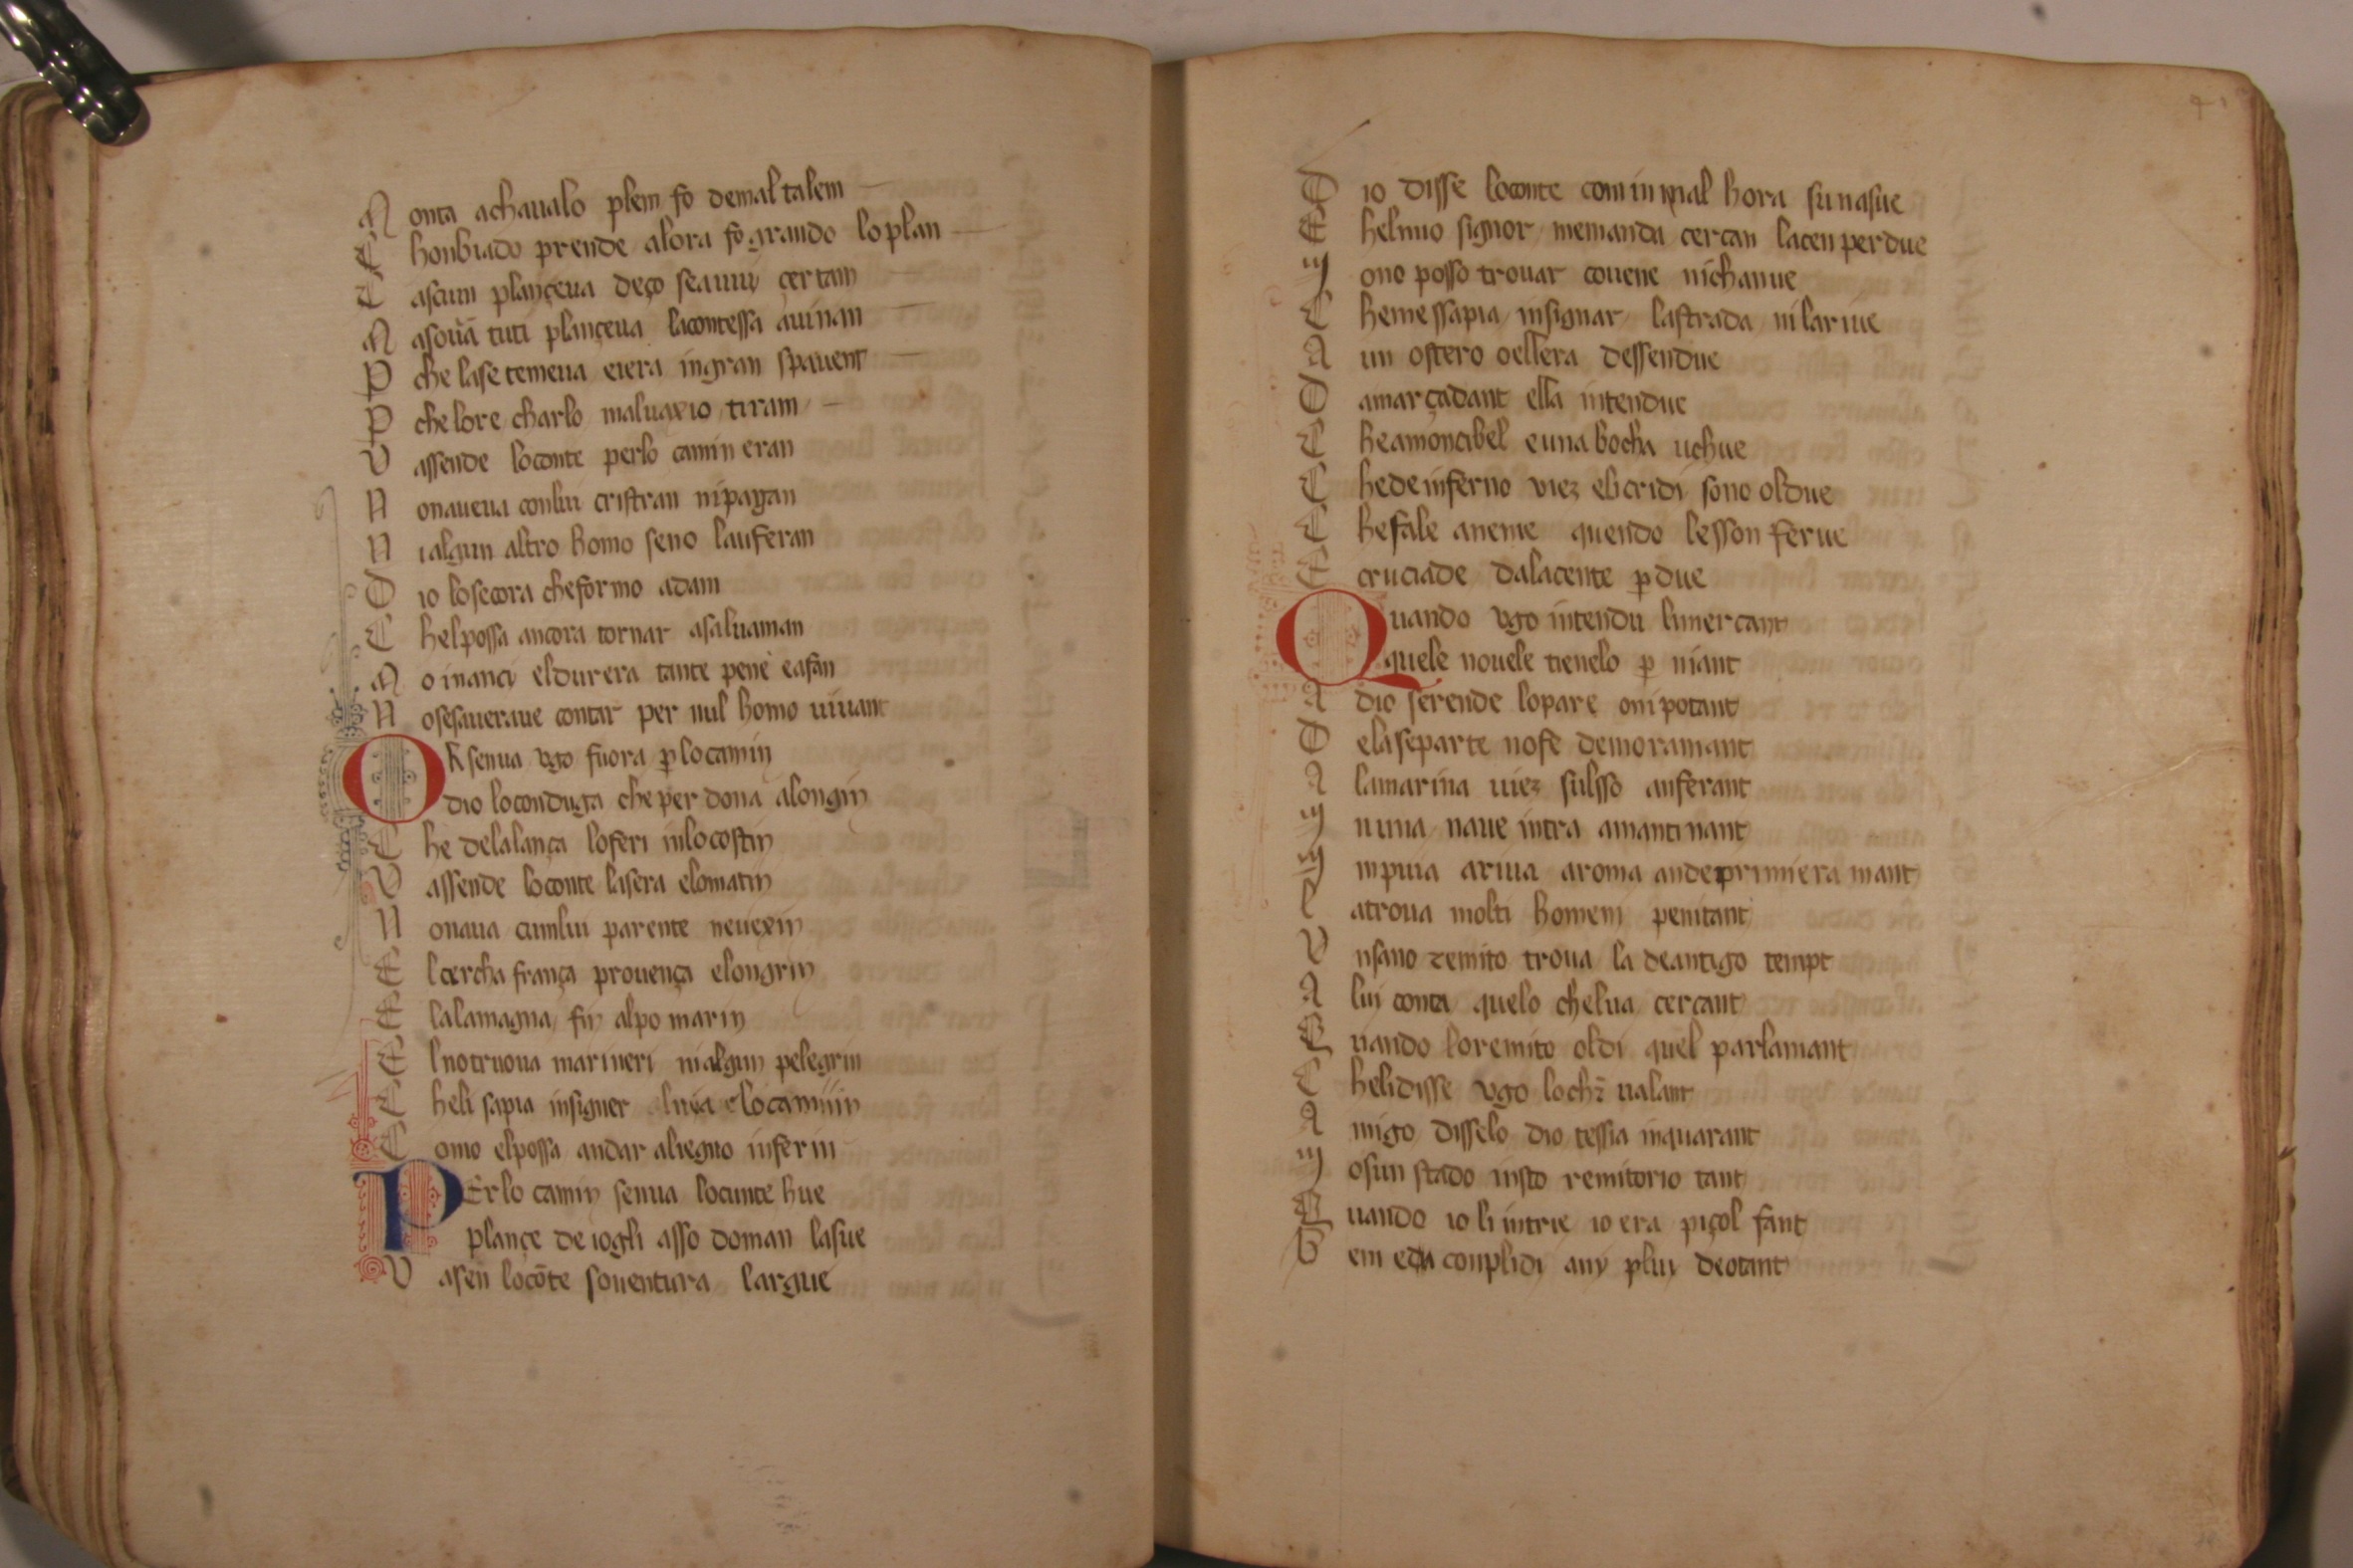 M onta achaualo plem fo demal talem
C honbiado prende alora fo grando lo plan
C ascun plançeua deço seauui certam
M asouā tuti plançeua lacontessa auinan
P che lase temeua eiera in gran spauent
P che lore charlo maluaxio tiram
V assende loconte perlo camin eran
N onaueua conlui cristian ni pagan
N ialgun altro homo seno lauferan
D io losecora cheformo adam
C helpossa ancora tornar asaluaman
M o inanci eldurera tante pene eafan
N osesaueraue contar per nul homo uiuant
OR senua vgo fuora plocamin
dio loconduga che per dona alongin
C he delalança loferi inlocostin
V assende loconte lasera elomatin
N onaua cumlui parente neuexin
E lcercha frança prouença elongrin
E lalamagna fin alpo marin
E lnotruoua marineri nialgun pelegrin
C heli sapia insigner luia elocamin
C omo elpossa andar aliegno inferin
PErlo camin senua locunte hue
plançe de iogli asso doman lasue
V asen locōte souentura largue
D io disse loconte com in mal hora sunasue
E helmio signor memanda cercan lacen perdue
IN ono posso trouar couene nichanue
C hemessapia insignar lastrada ni lariue
A un ostero oellera dessendue
D amarçadant ella intendue
C heamoncibel euna bocha uchue
C hede inferno viez elicridi sono oldue
C hefale aneme quendo lesson ferue
E cruciade dalacente pdue
Quando vgo intendu limercant
quele nouele tienelo p niant
A dio serende lopare onipotant
D elaseparte nofe demoramant
A lamarina uiez sulsso auferant
IN nuna naue intra amantinant
IN inpuia ariua aroma andeprimiera mant
L atroua molti homeni penitant
V nsano remito troua la deantigo tempt
A lui conta quelo chelua cercant
Q uando loremito oldi quel parlamant
C helidisse vgo lochr̄ ualant
A migo disselo dio tessia inquarant
IN osun stado insto remitorio tant
Q uando io li intrie io era piçol fant
B em edu conplidi any plui deotant